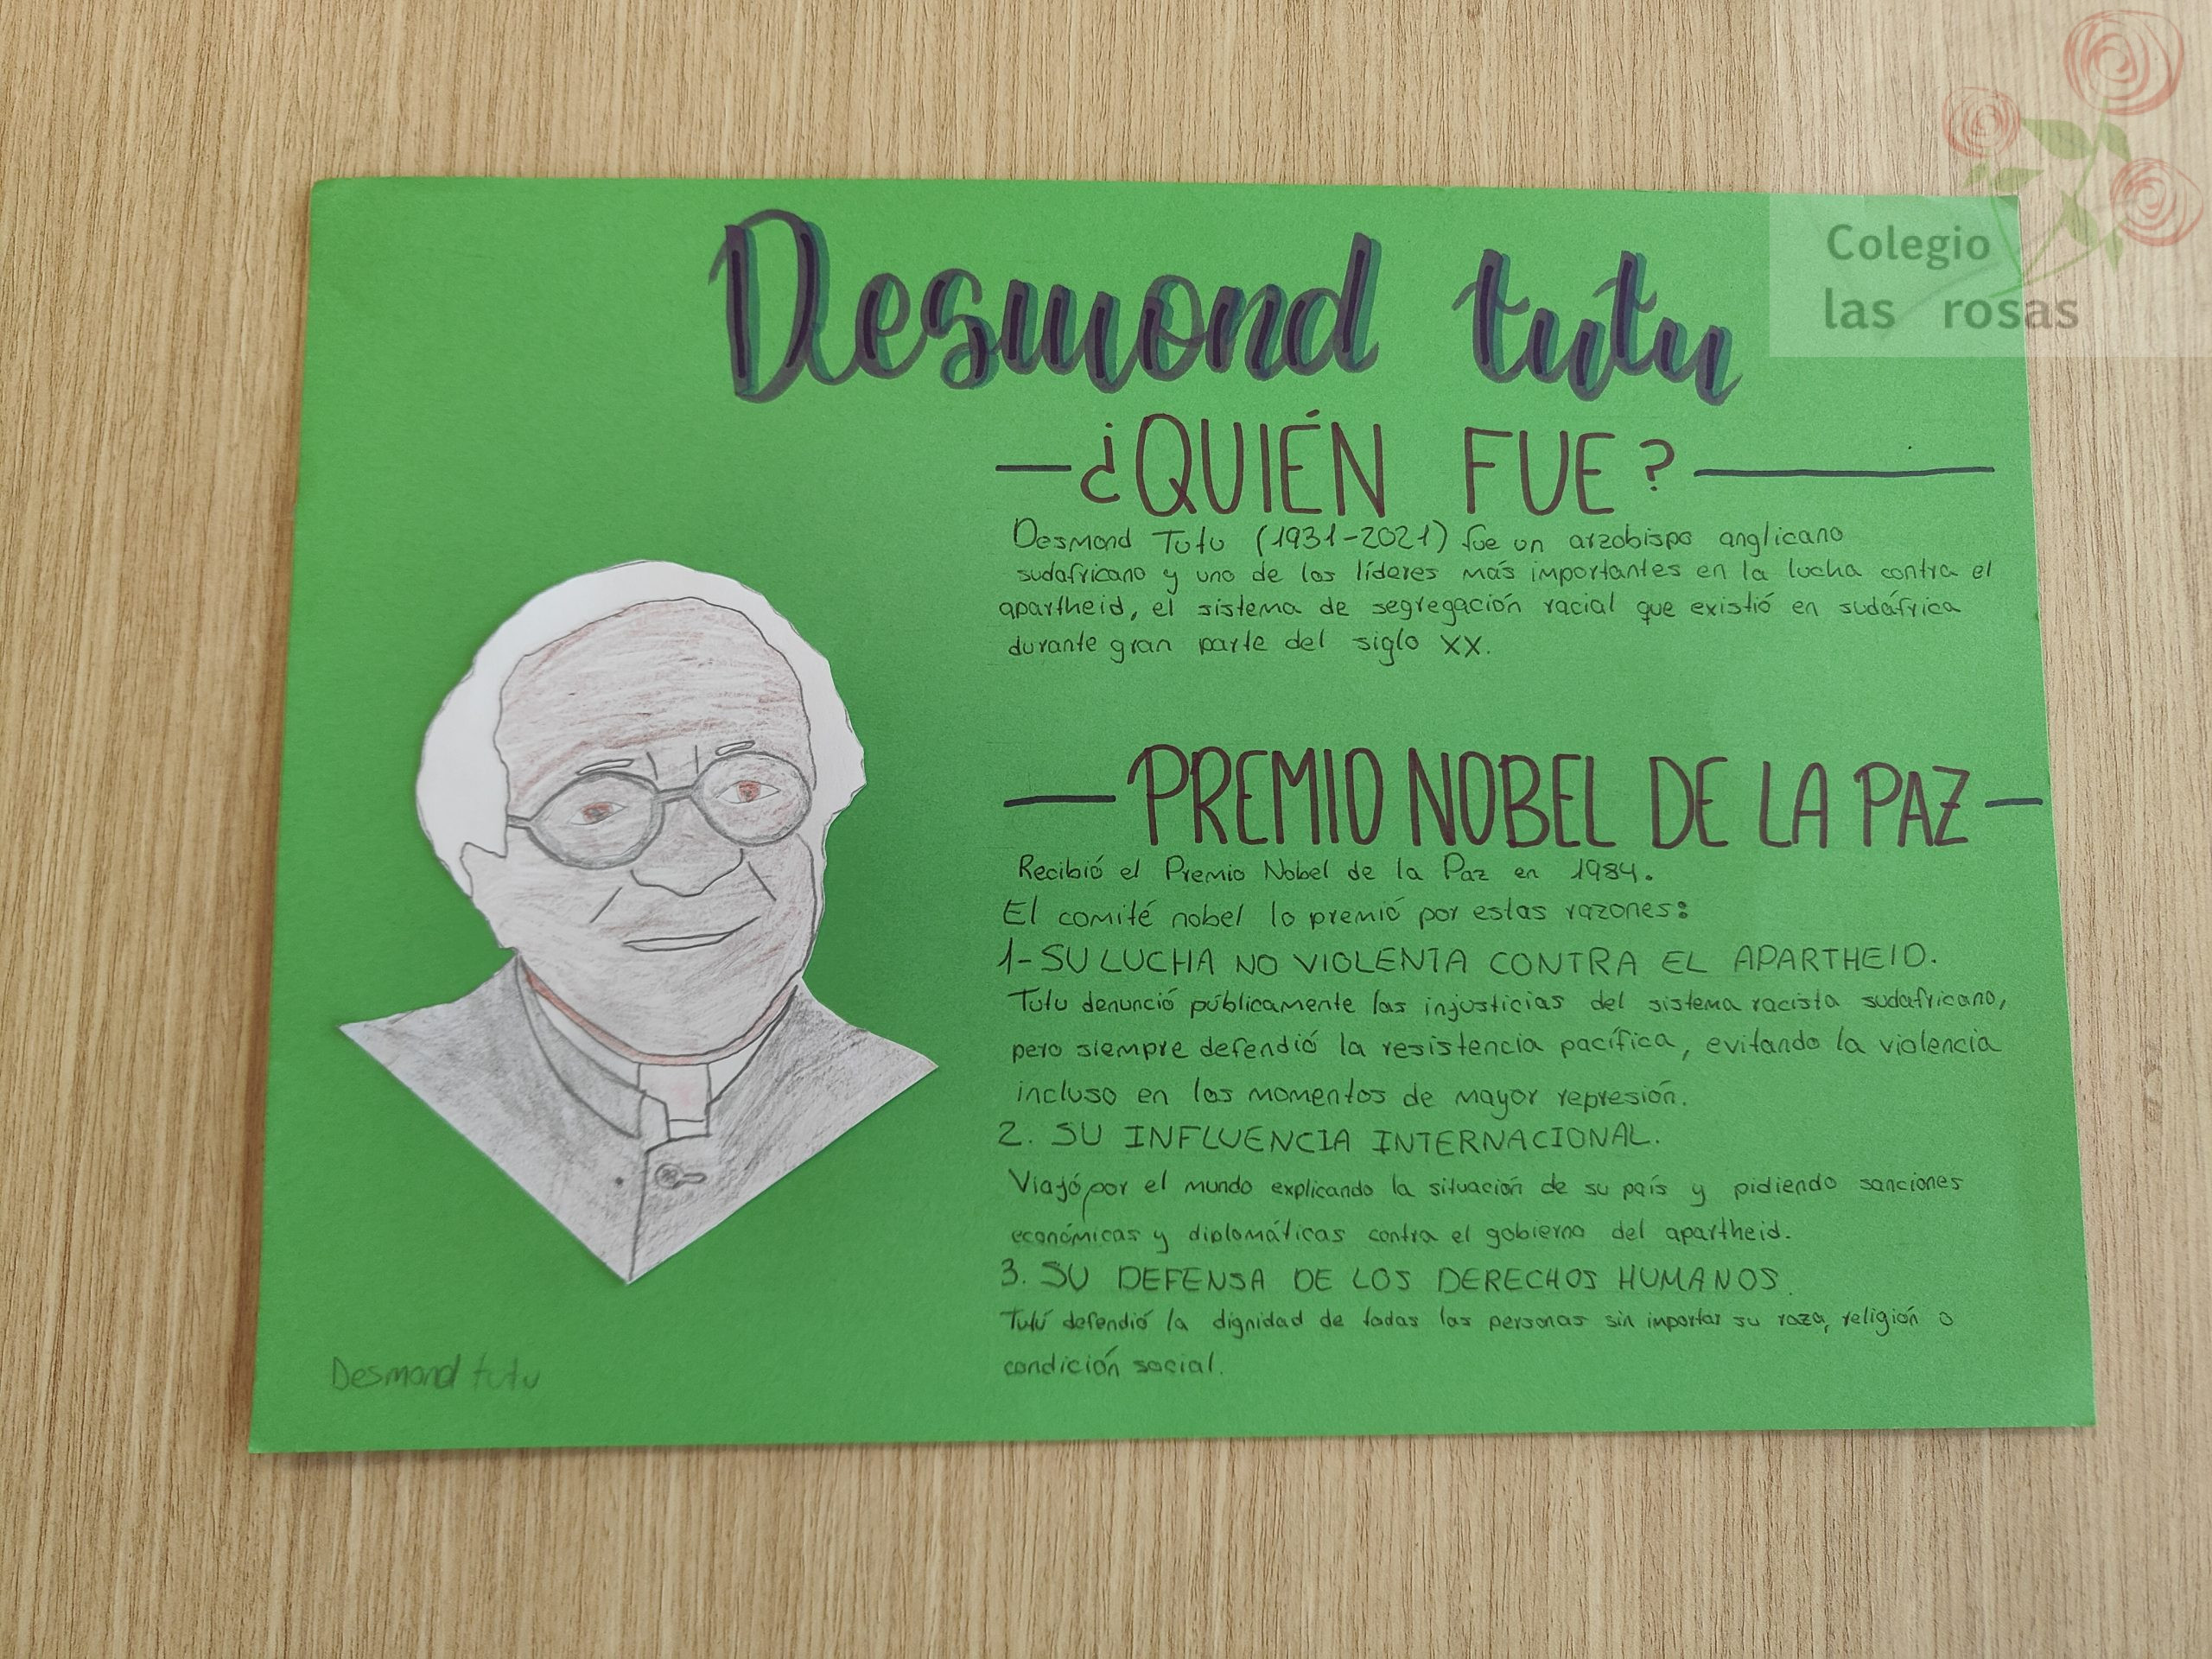 Colegio
las rosas
Desmond tutu
¿QUIÉN FUE?
Desmond Tutu (1931-2021) fue un arzobispo anglicano
sudafricano y uno de los líderes más importantes en la lucha contra el
apartheid, el sistema de segregación racial que existió en sudáfrica
durante gran parte del siglo XX.
PREMIO NOBEL DE LA PAZ
Recibió el Premio Nobel de la Paz en 1984.
El comité nobel lo premió por estas razones:
1- SU LUCHA NO VIOLENTA CONTRA EL APARTHEID.
Tutu denunció públicamente las injusticias del sistema racista sudafricano,
pero siempre defendió la resistencia pacífica, evitando la violencia
incluso en los momentos de mayor represión.
2. SU INFLUENCIA INTERNACIONAL.
Viajó por el mundo explicando la situación de su país y pidiendo sanciones
económicas y diplomáticas contra el gobierno del apartheid.
3. SU DEFENSA DE LOS DERECHOS HUMANOS.
Tutú defendió la dignidad de todas las personas sin importar su raza, religión o
condición social.
Desmond tutu